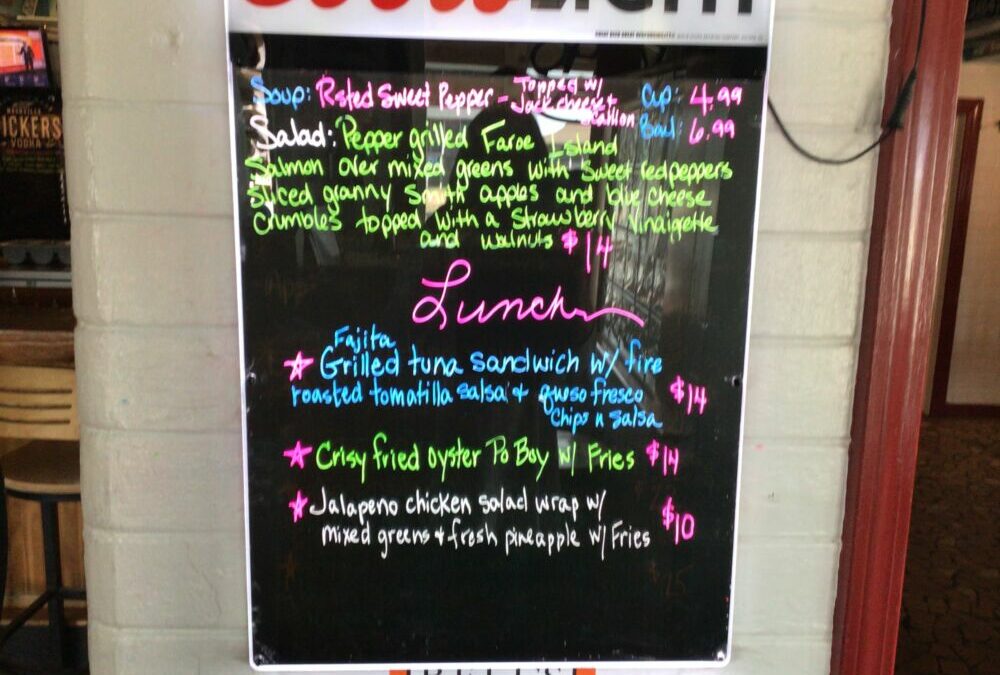 Coors LIGHT
Soup: Rsted Sweet Pepper - Topped w/ Jack cheese + Scallion Cup: 4.99
Bowl: 6.99
Salad: Pepper grilled Faroe Island
Salmon over mixed greens with Sweet red peppers
Sliced granny Smith apples and blue cheese
Crumbles topped with a Strawberry Vinaigrette
and walnuts $14
Lunch
Fajita
☆ Grilled tuna sandwich w/ fire
roasted tomatilla salsa + qweso fresco $14
Chips n salsa
☆ Crisy fried oyster Po Boy w/ Fries $14
☆ Jalapeno chicken salad wrap w/ $10
mixed greens + fresh pineapple w/ Fries
ICKERS
VODKA